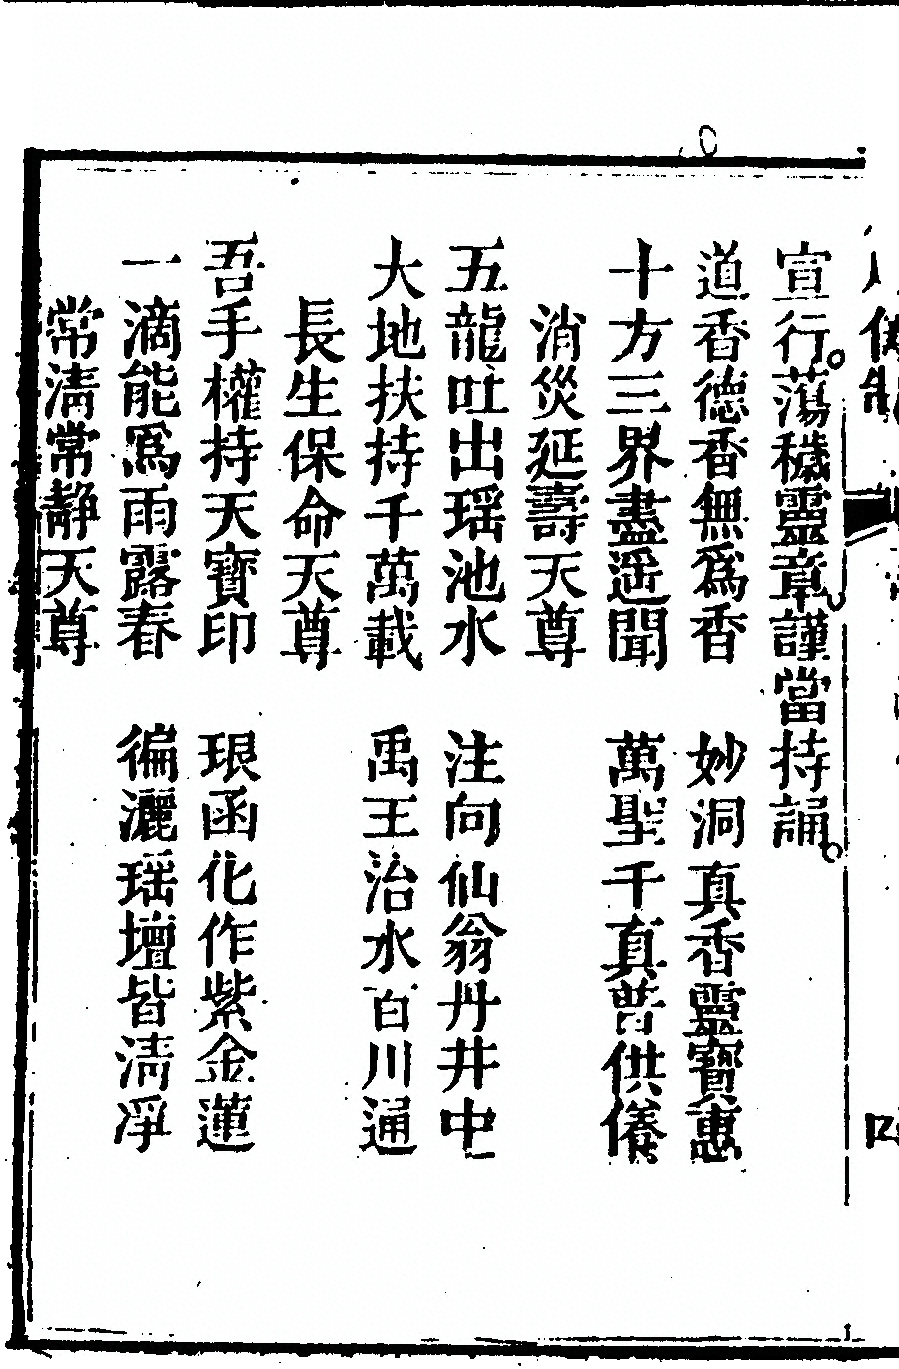 宣行蕩穢靈章謹當持誦
道香德香無爲香　妙洞真香靈寶惠
十方三界盡遥聞　萬聖千真普供養
消災延壽天尊
五龍吐出瑶池水　注向仙翁丹井中
大地扶持千萬載　禹王治水百川通
長生保命天尊
吾手權持天寶印　琅函化作紫金蓮
一滴能爲雨露春　徧灑瑶壇皆清凈
常清常静天尊